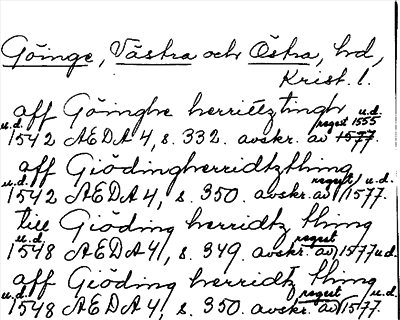 Göinge, Västra och Östra, hd,
Krist. l.
aff Göinghe herrietztingh u.d.
u.d. 1542 AEDA 4, s. 332. avskr. av regest 1555 1577.
aff Giödingherridtzthing
u.d. 1542 AEDA 4, s. 350. avskr. av regest u.d. 1577.
till Giöding herridtz thing
u.d. 1548 AEDA 4, s. 349 avskr. av regest 1577 u.d.
aff Giöding herridtz thing
u.d. 1548 AEDA 4, s. 350. avskr. av regest u.d. 1577.